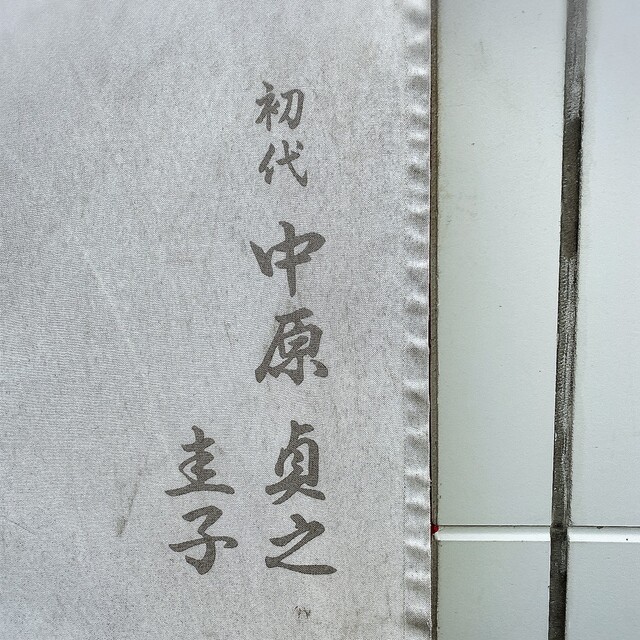 初代 中原 貞之
圭子